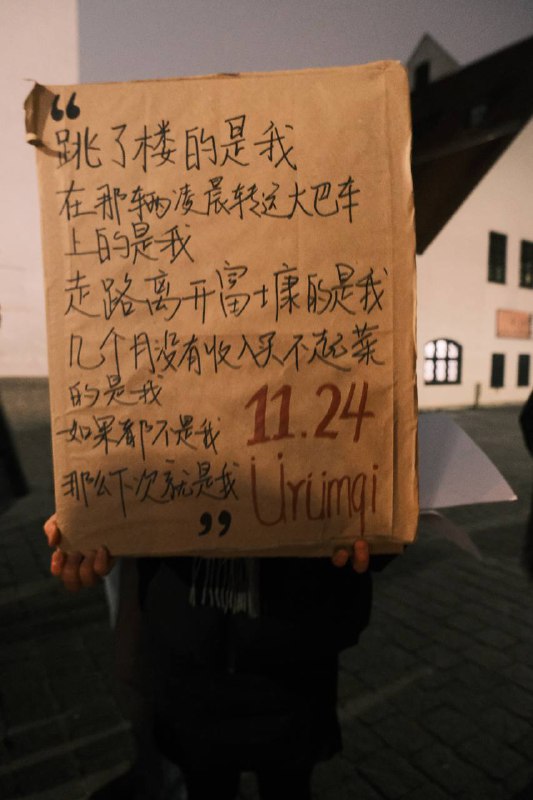 “
跳了楼的是我
在那辆凌晨转运大巴车
上的是我
走路离开富士康的是我
几个月没有收入买不起菜
的是我
如果都不是我
那么下次就是我
”
11.24
Ürümqi